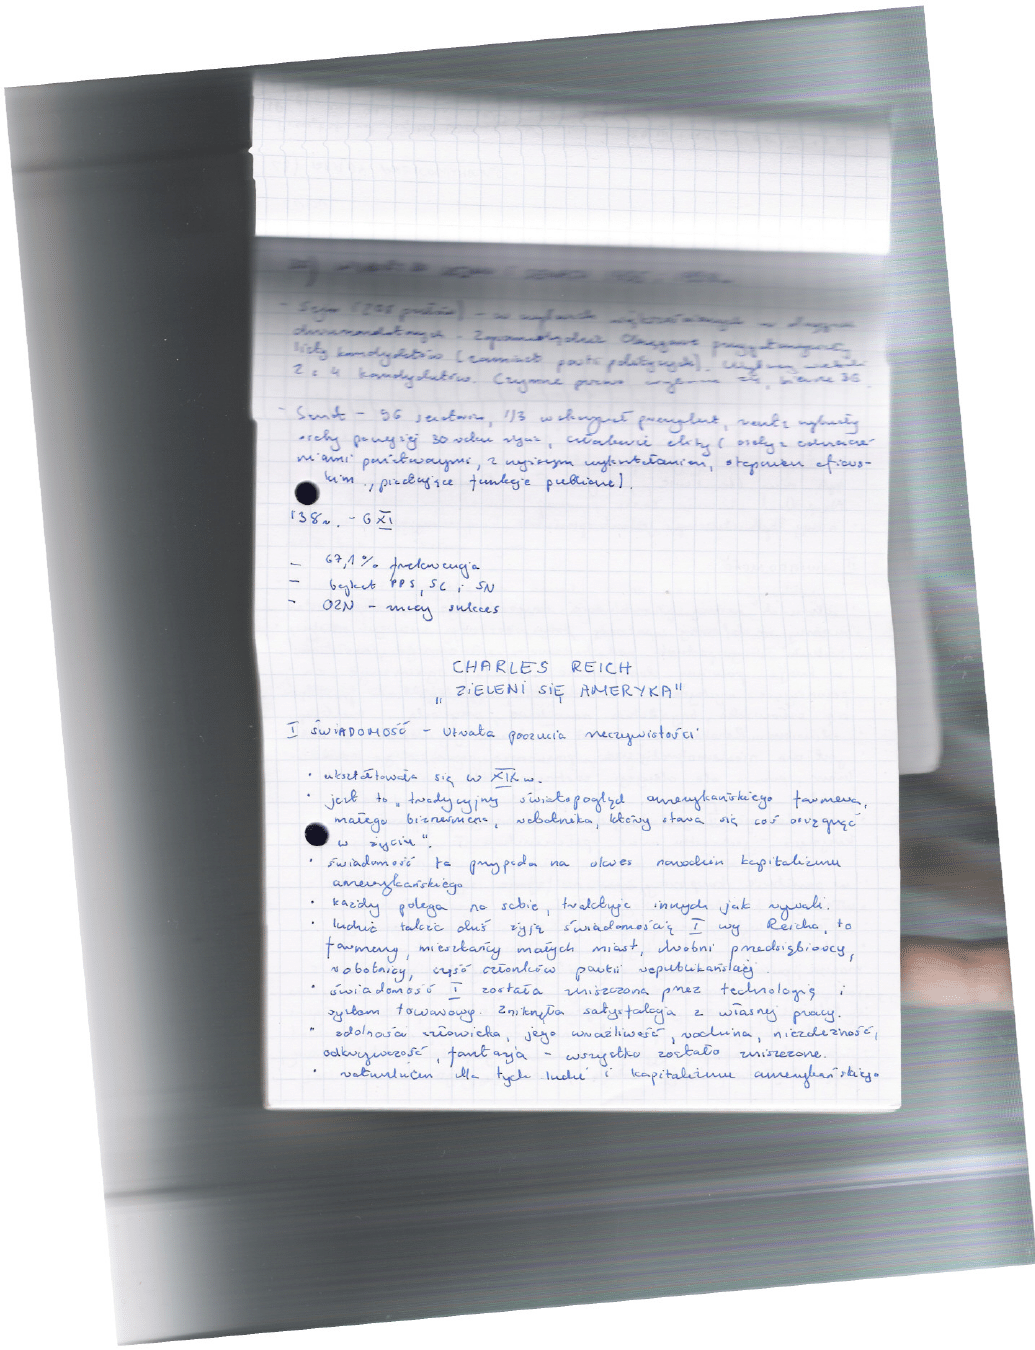 - Sejm (208 posłów) - w
dwumandatowych. Zgromadzenie Okręgowe przygotowywały
listy kandydatów (zamiast partii politycznych). Wybierano
2 z 4 kandydatów. Czynne prawo wyborcze 24, bierne 30.
- Senat - 96 senatorów, 1/3 prezydent, resztę wybierały
osoby powyżej 30 roku życia, elity (osoby z odznacze-
niami państwowymi, z wyższym wykształceniem, stopniem oficers-
kim, piastujące funkcje publiczne).
'38 r. - 6 XI
- 67,1% frekwencja
- bojkot PPS, SL i SN
- OZN - mały sukces
CHARLES REICH
„ZIELENI SIĘ AMERYKA"
I ŚWIADOMOŚĆ - utrata poczucia rzeczywistości
· ukształtowała się w XIX w.
· jest to „tradycyjny światopogląd amerykańskiego farmera,
małego biznesmena, robotnika, który stara się coś osiągnąć
w życiu".
· świadomość ta przypada na okres narodzin kapitalizmu
amerykańskiego
· każdy polega na sobie, traktuje innych jak rywali.
· ludzie także dziś żyją świadomością I wg Reicha, to
farmerzy, mieszkańcy małych miast, drobni przedsiębiorcy,
robotnicy, część członków partii republikańskiej.
· świadomość I została zniszczona przez technologię i
system towarowy. Zniknęła satysfakcja z własnej pracy.
· zdolności człowieka, jego wrażliwość, rodzina, niezależność,
odkrywczość, fantazja - wszystko zostało zniszczone.
· ratunkiem dla tych ludzi i kapitalizmu amerykańskiego